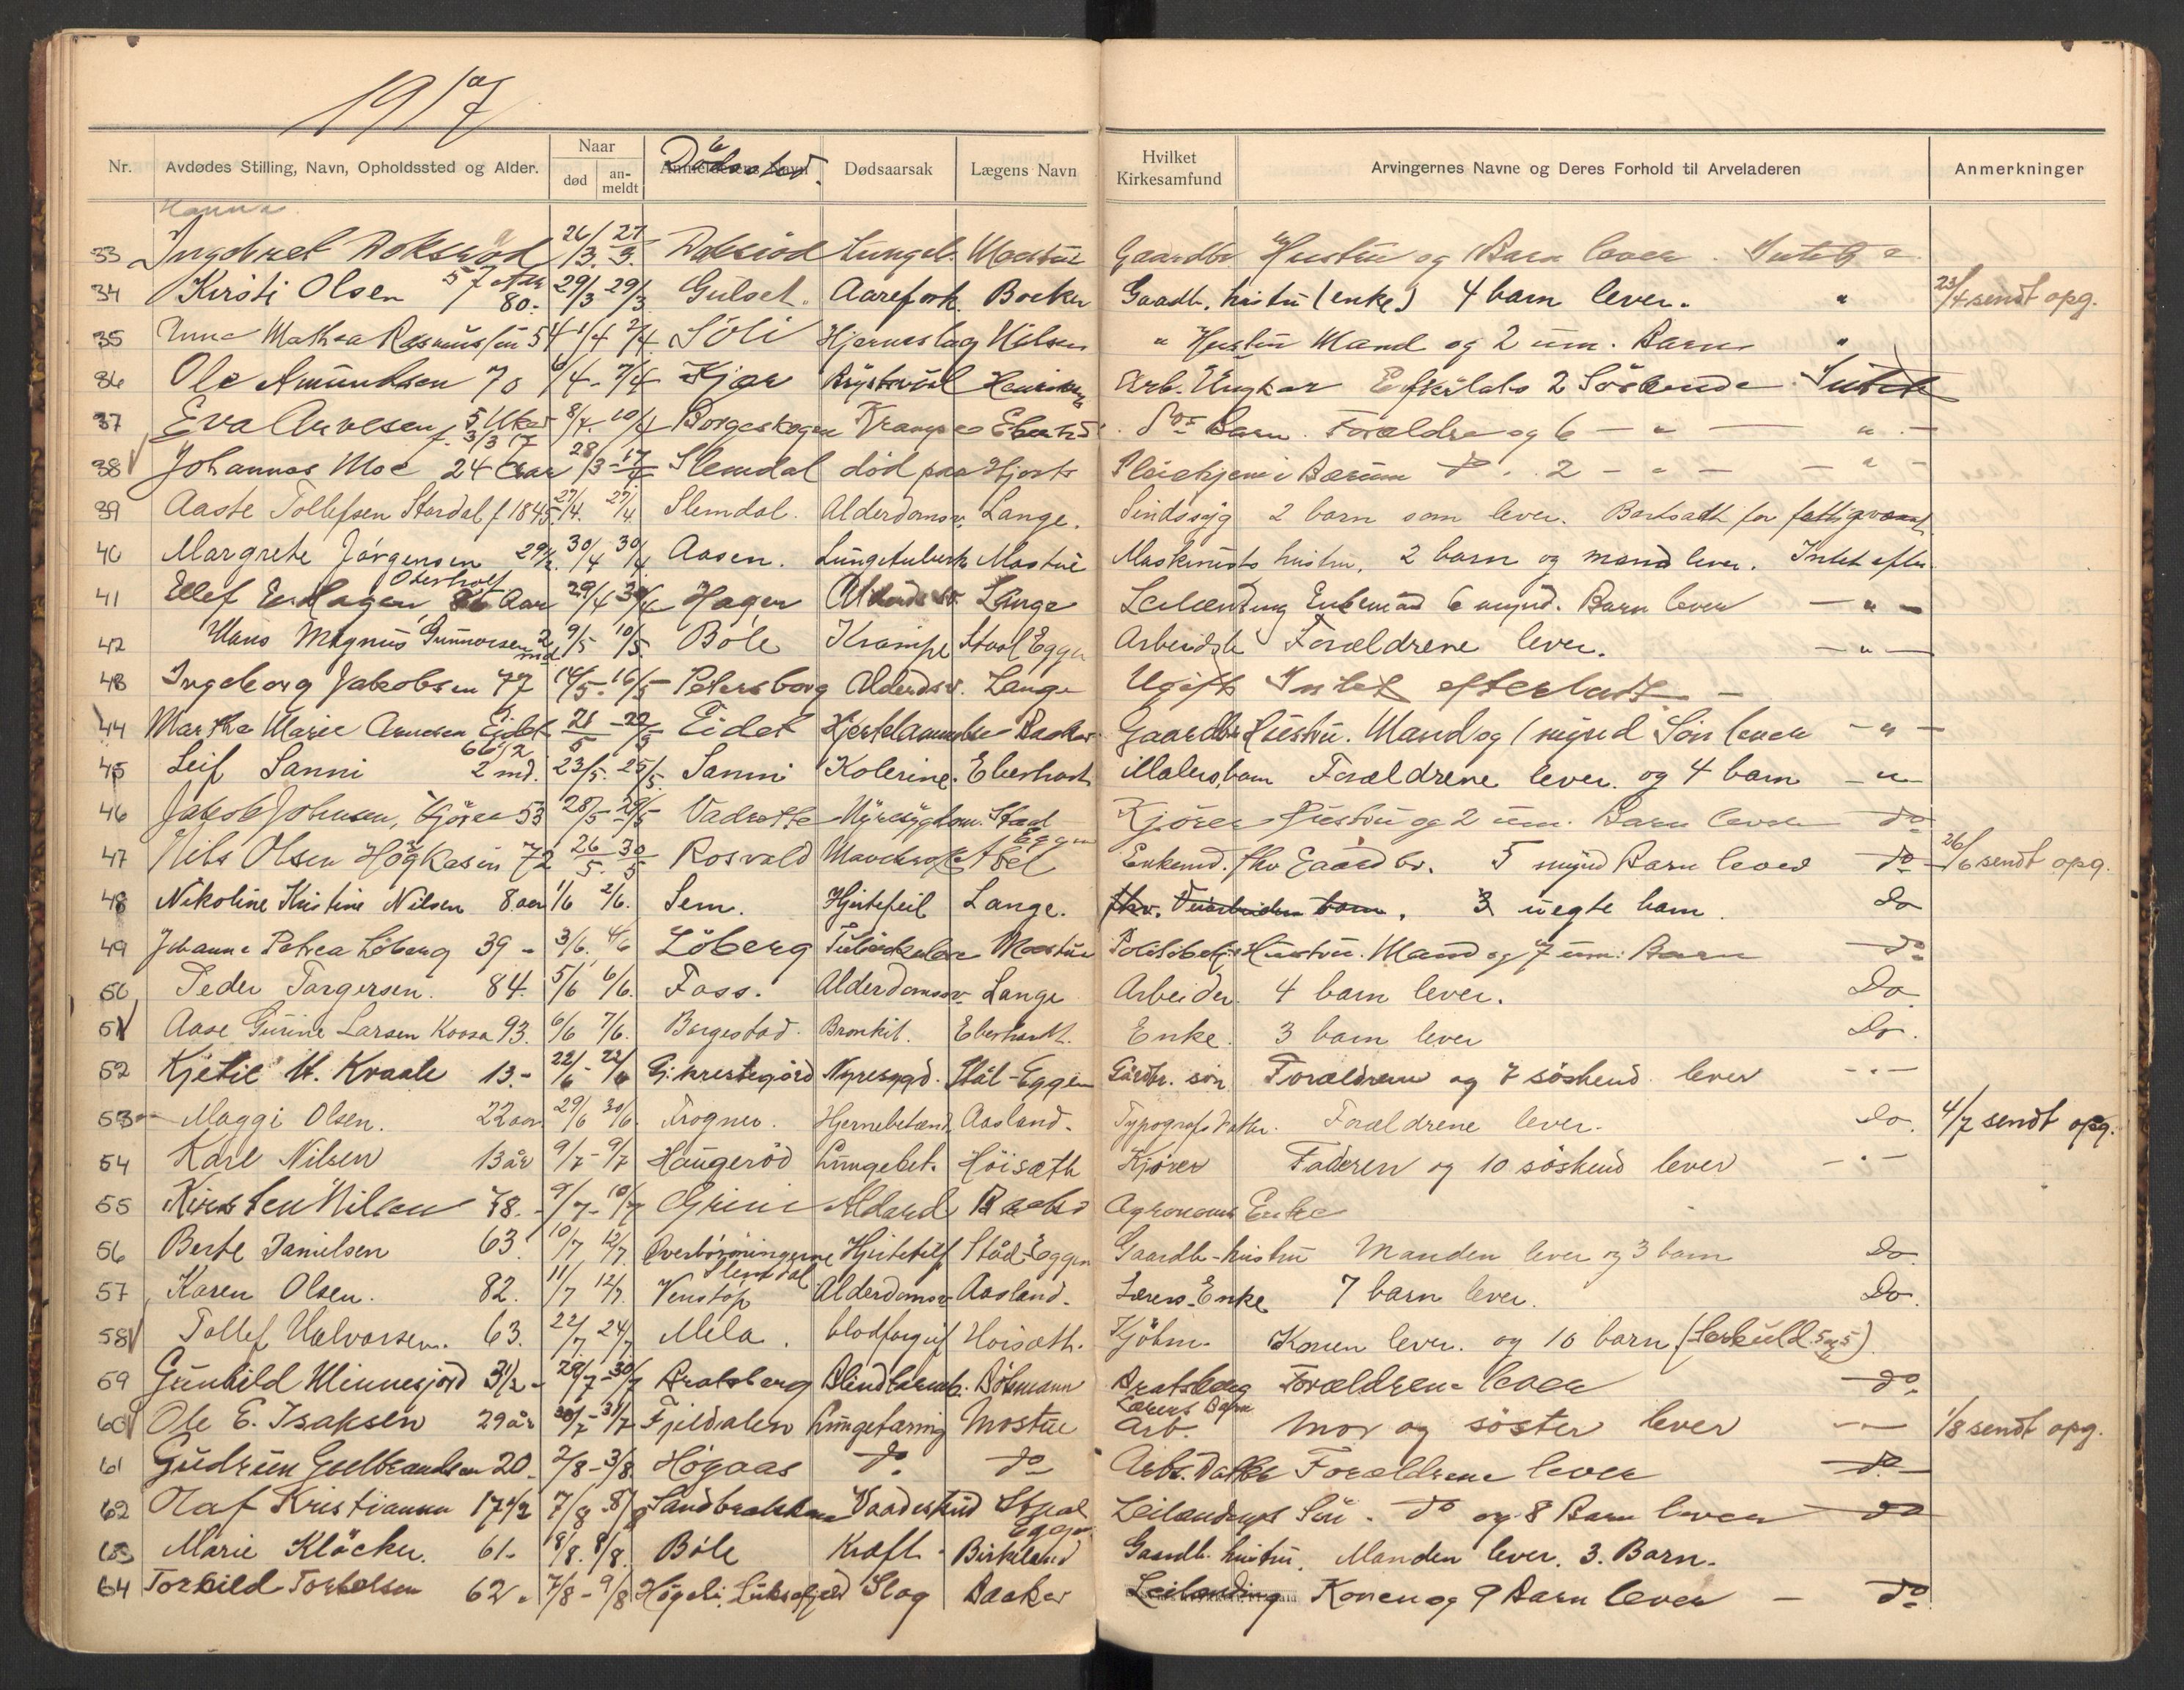 1917
Nr. Avdødes Stilling, Navn, Opholdssted og Alder. Naar død anmeldt Anmelderens Navn Dødssted. Dødsaarsak Lægens Navn Hvilket Kirkesamfund Arvingernes Navne og Deres Forhold til Arveladeren Anmerkninger
Hanna
33 Ingebret 26/3. 27/3. Lungeb. Mostue Gaardbr Hustru og Barn lever.
57 Aar
34 Kirsti Olsen 80. 29/3 29/3 Gulset. Aarefork. Gaardb. hustru (enke) 4 barn lever. " 23/4 sendt opg.
35 Mathea Rasmussen 54 1/4 2/4 Söli Hjerneslag Nilsen " Hustru Mand og 2 um. Barn "
36 Ole Amundsen 70 6/4 - 7/4 Kjær Arb. Ungkar 2 Söskende
37 Eva Arvesen 5 Uker 8/4 - 10/4 Borgeskogen Krampe Do Barn. Forældre og 6 — " — " —
f. 3/3 17
38 Johannes Moe 24 Aar 28/3 - 17/4 Slemdal död paa Hjorts Pleiehjem i Bærum do. 2 — " — — " —
39 Aaste Tollefsen Stordal f 1845 27/4. 27/4. Slemdal. Alderdomsv. Lange. Sindssyg 2 barn som lever. Bortsatt for fattigvæsnt
40 Margrete Jörgensen 29 1/2. 30/4 30/4 Aasen. Lungetuberk. Mostue Maskinists hustru. 2 barn og mand lever. Intet efter.
41 Ellef E. Hagen, Aar 29/4 30/4 Hagen Lange Leilænding Enkemand 6 mynd. Barn lever — " —
42 Hans Magnus Gunnarsen 2 md 9/5 10/5. Bøle Krampe Staal Eggen Arbeidsb Forældrene lever. — " —
43 Ingeborg Jakobsen 77 14/5 - 16/5 Petersborg Alderdsv. Lange Ugift Intet efterladt —
44 Marthe Marie Arnesen Eidet 66 1/2 21/5 - 22/5 Eidet Hjertelammelse Baaker Gaardbr Hustru. Mand og 1 mynd Sön lever — " —
45 Leif Sanni 2 md. 23/5. 25/5. Sanni Kolerine. Eberhardt Malers barn Forældrene lever. og 4 barn — " —
46 Jakob Johnsen, Kjörer 53 28/5 - 29/5 Vadrette Nyresygdom. Staal Eggen Kjörer Hustru og 2 um. Barn lever do
47 Nils Olsen Høgkasin 72 26/5 - 30/5 Rosvald Mavekræft Abel Enkemd. fhv Gaardbr. 5 mynd Barn lever do 26/6 sendt opg.
48 Nikoline Kristine Nilsen 8 aar 1/6 2/6. Sem. Hjertefeil Lange. 3 uegte barn. do
49 Johanne Petrea Löberg 39 - 3/6. 4/6 Löberg Tuberkulose Mostue Politibetj. Hustru. Mand og 7 um. Barn do
50 Peder Torgersen. 84. 5/6 6/6. Foss. Alderdomsv. Lange Arbeider. 4 barn lever. Do
51 Aase Gurine Larsen Kovsa 93. 6/6 7/6. Borgestad. Bronkit. Eberhardt. Enke. 3 barn lever Do.
52 Kjetil H. Kvaale 13.- 22/6 - 22/6 Gj. prestegörd Nyresygd. Stål-Eggen Gårdbr. sön Forældrene og 7 söskend. lever - " -
53 Maggi Olsen. 22 aar 29/6 30/6. Frogner. Hjernebetænd. Aasland. Typografs datter. Forældrene lever. Do. 4/7 sendt opg.
54 Karl Nilsen 13 år 9/7 - 9/7 Haugeröd Lungebet. Höisæth Kjører Faderen og 10 söskend lever - " -
55 Kirsten Nilsen 78. 9/7 - 10/7 Grini Alderd Agronoms Enke
56 Berte Danielsen 63. 10/7 12/7. Overbörningerne Slemdal Hjertefeil Ståd-Eggen Gaardb-hustru Manden lever og 3 barn Do.
57 Karen Olsen. 82. 11/7 12/7. Venstöp Alderdomsv. Aasland. Lærers-Enke 7 barn lever. Do.
58 Tollef Halvorsen. 63. 22/7. 24/7. Mela. blodforgif Höisæth. Kjöbm. Konen lever. og 10 barn (særkuld 5 og 5)
59 Gunhild Minnesjord 3 1/2 - 29/7 - 30/7 Bratsberg Blindtarmb. Böhmann Bratsberg Lærers Barn Forældrene lever do
60 Ole E. Isaksen 29 år 30/7 - 31/7 Fjeldalen Lungetæring Mostue Arb. Mor og söster lever — " — 1/8 sendt opg.
61 Gudrun Gulbrandsen 20. 2/8 - 3/8. Högaas do do Arb. Datter Forældrene lever do
62 Olaf Kristiansen 17 1/2 7/8 - 8/8 Vaadeskud Staal Eggen Leilændings Sön. do og 8 Barn lever do
63 Marie Klöcker. 61- 8/8. 8/8. Böle Kræft. Birkeland Gaardb. hustru. Manden lever. 3. Barn.
64 Torkild Torkelsen 62. 7/8 - 9/8 Högeli, Luksefjeld Slag Baaker Leilænding Konen og 9 Barn lever — do